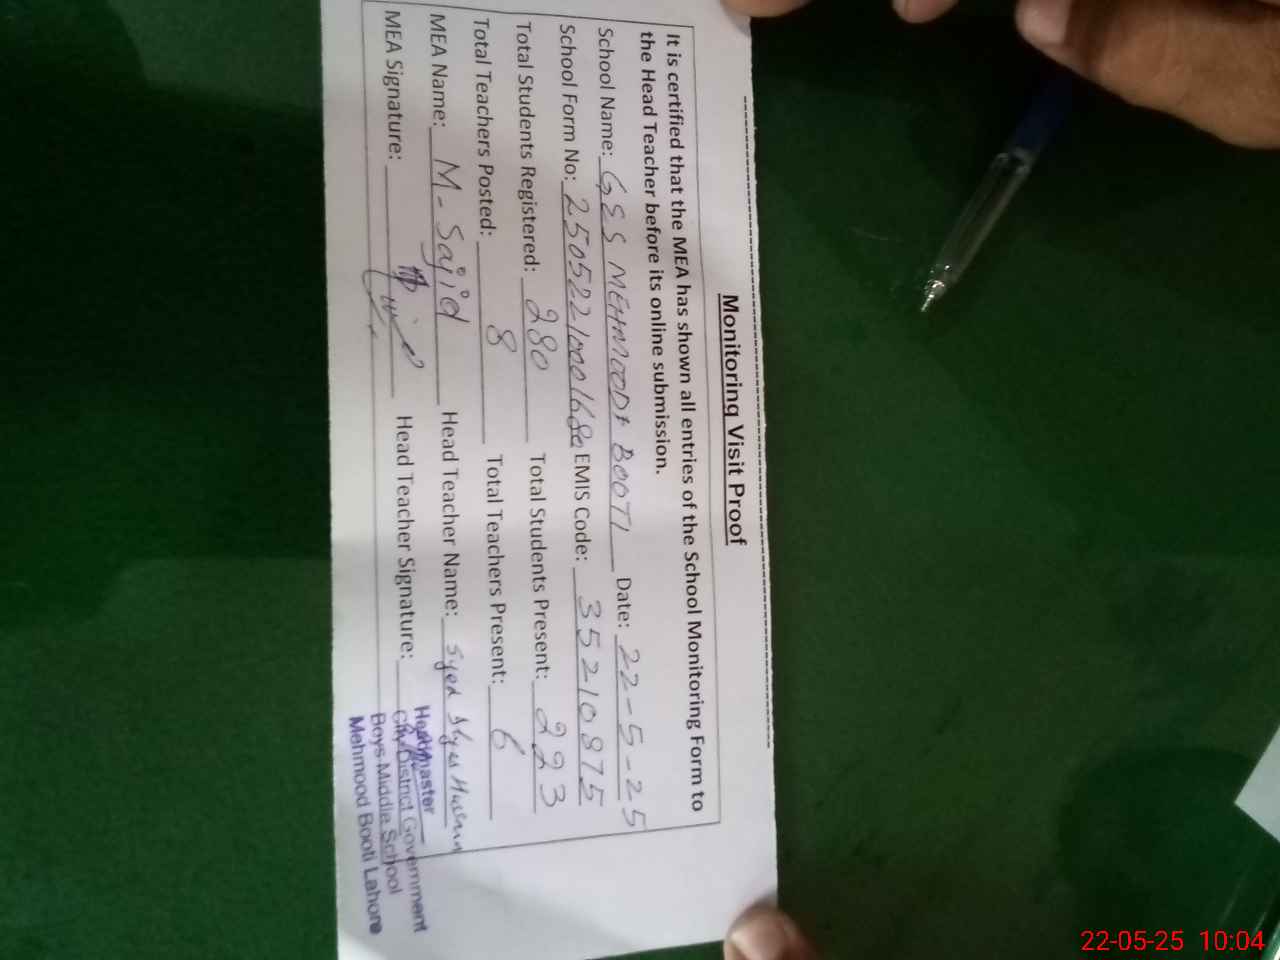 Monitoring Visit Proof
It is certified that the MEA has shown all entries of the School Monitoring Form to
the Head Teacher before its online submission.
School Name: GES MEHMOODA BOOTI Date: 22-5-25
School Form No: EMIS Code: 35210875
Total Students Registered: 280 Total Students Present: 223
Total Teachers Posted: 8 Total Teachers Present: 6
MEA Name: M-Sajid Head Teacher Name: Syed
MEA Signature: Head Teacher Signature:
Headmaster
City District Government
Boys Middle School
Mehmood Booti Lahore
22-05-25 10:04